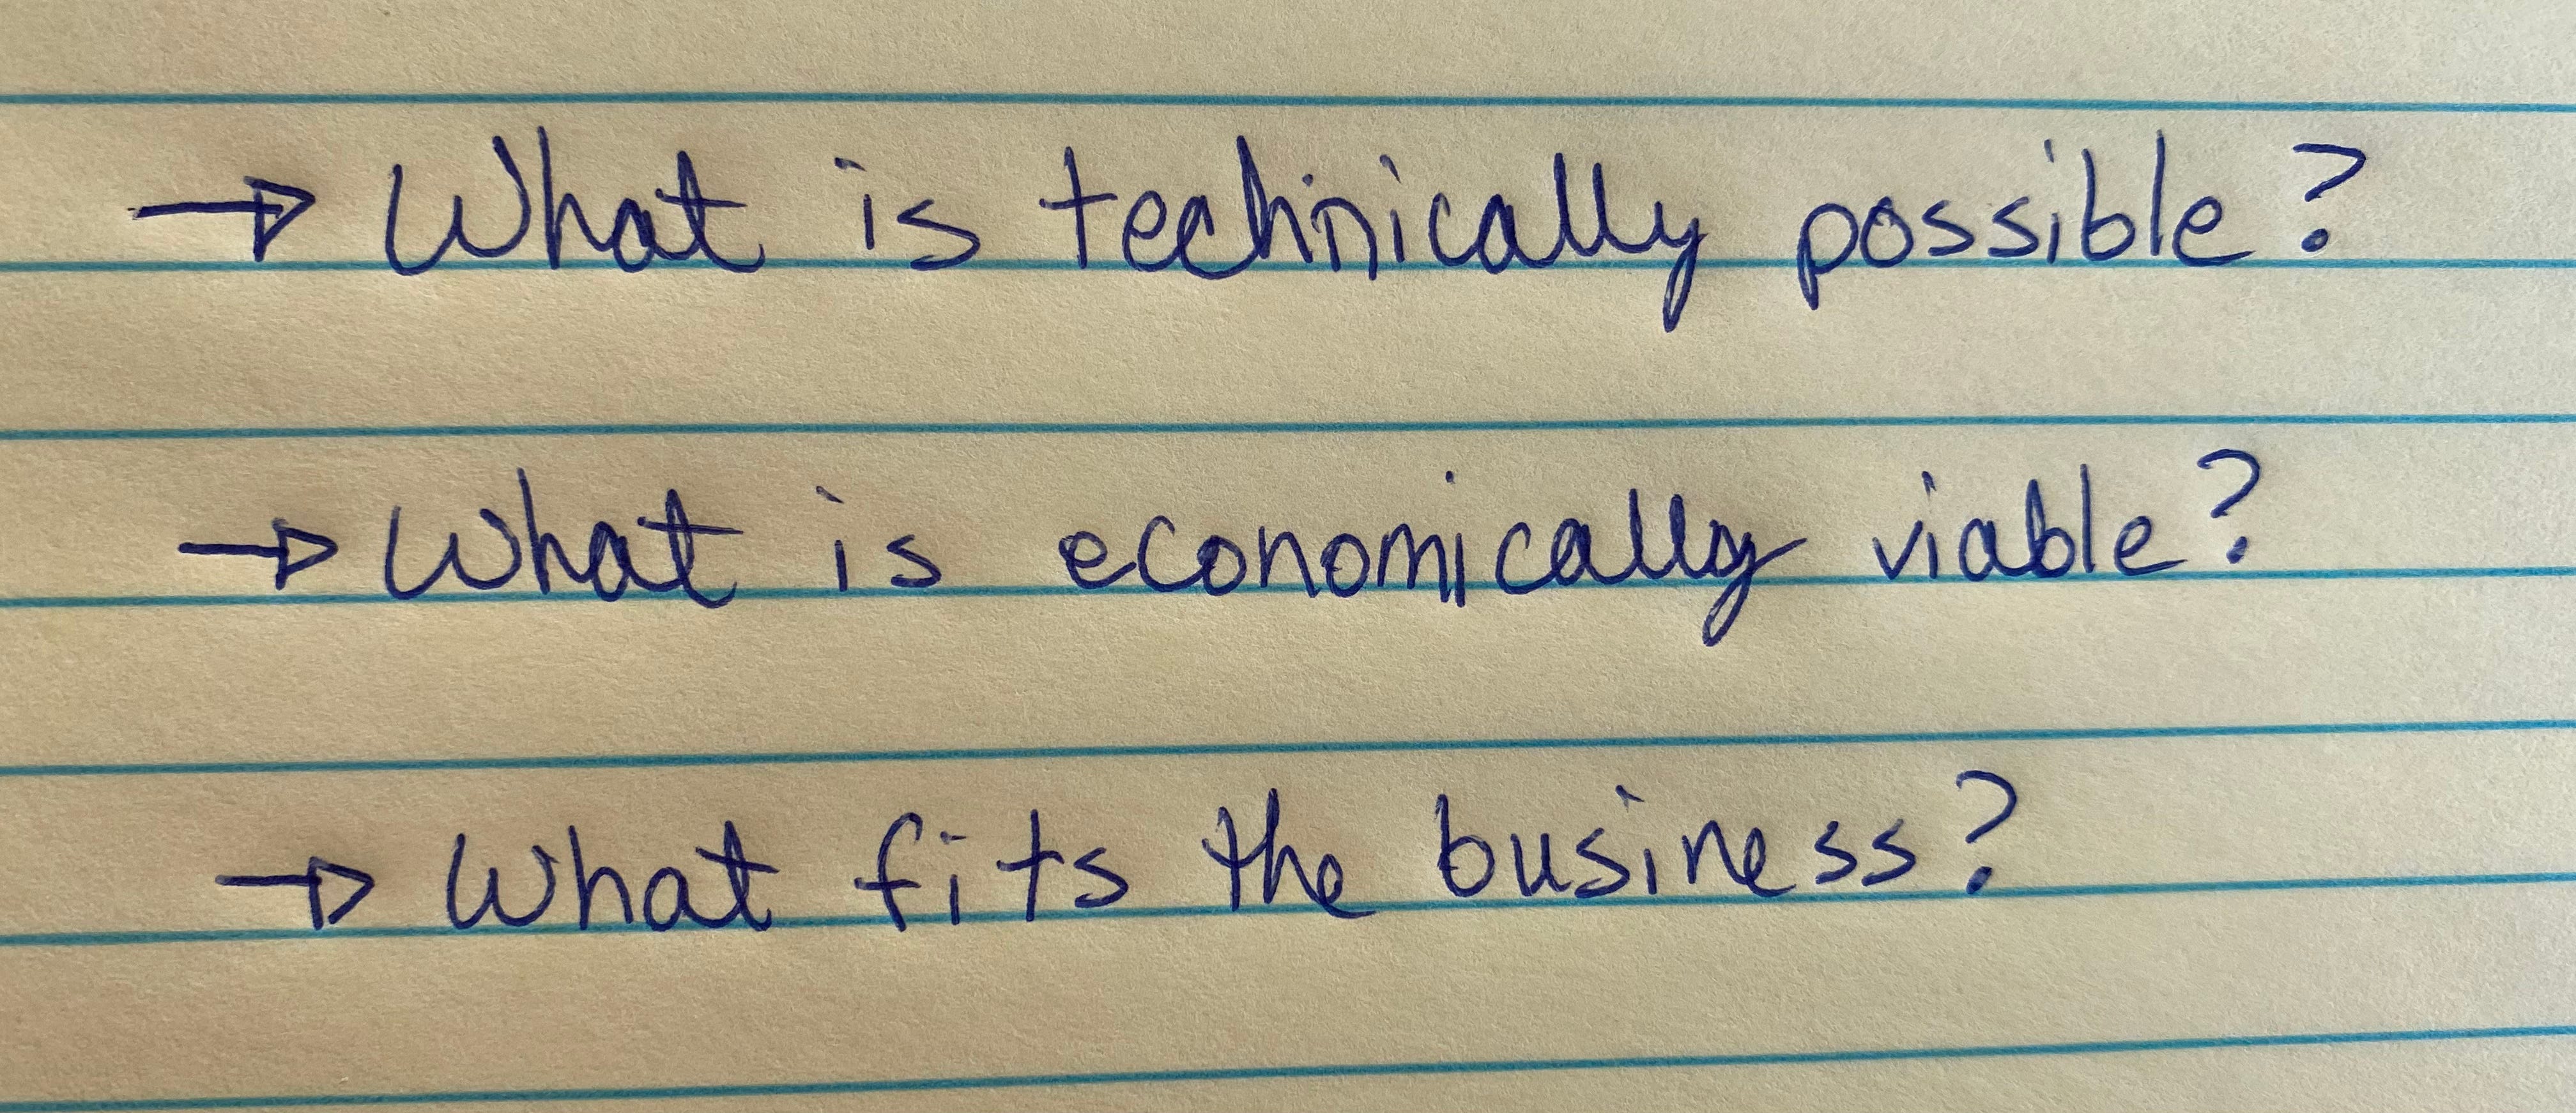 → What is technically possible?
→ What is economically viable?
→ What fits the business?